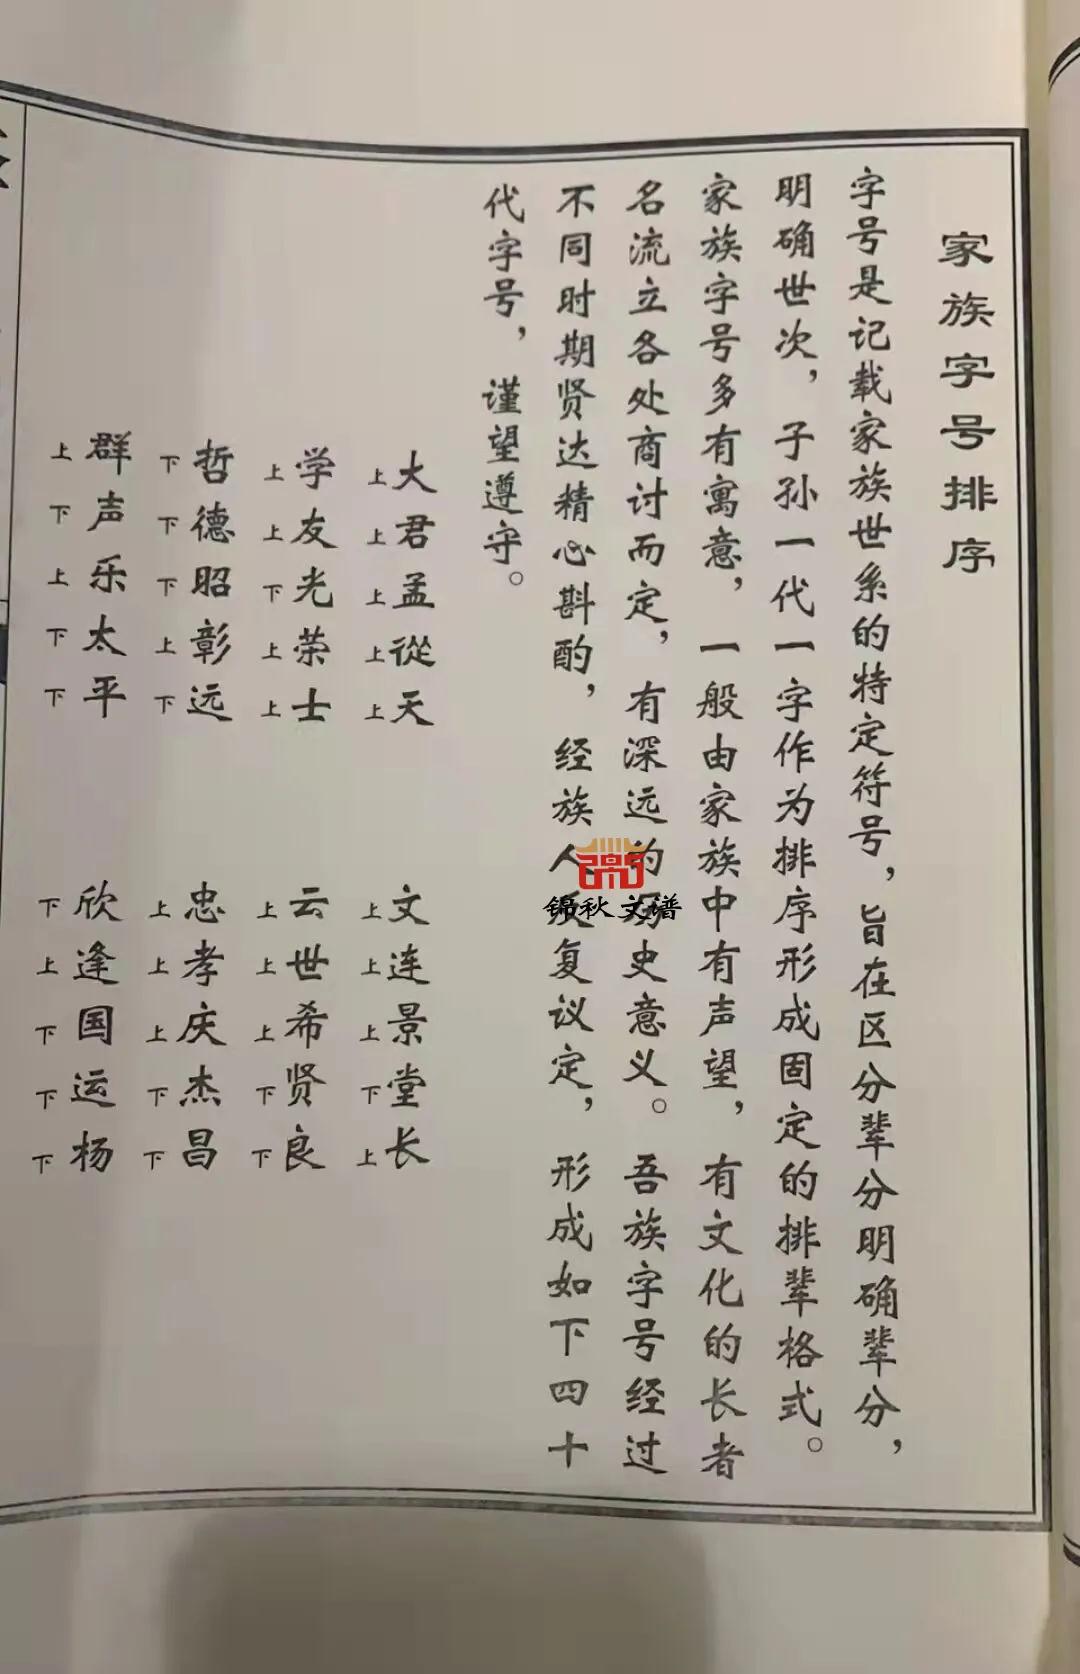 家族字号排序
字号是记载家族世系的特定符号，旨在区分辈分明确辈分，
明确世次，子孙一代一字作为排序形成固定的排辈格式。
家族字号多有寓意，一般由家族中有声望，有文化的长者
名流立各处商讨而定，有深远的历史意义。吾族字号经过
不同时期贤达精心斟酌，经族人反复议定，形成如下四十
代字号，谨望遵守。
大君孟從天 文连景堂长
上上上上上 上上上下上
学友光荣士 云世希贤良
上上下上上 上上上下下
哲德昭彰远 忠孝庆杰昌
下下下上下 上上上下下
群声乐太平 欣逢国运杨
上下上下下 下上下下下
锦秋文谱